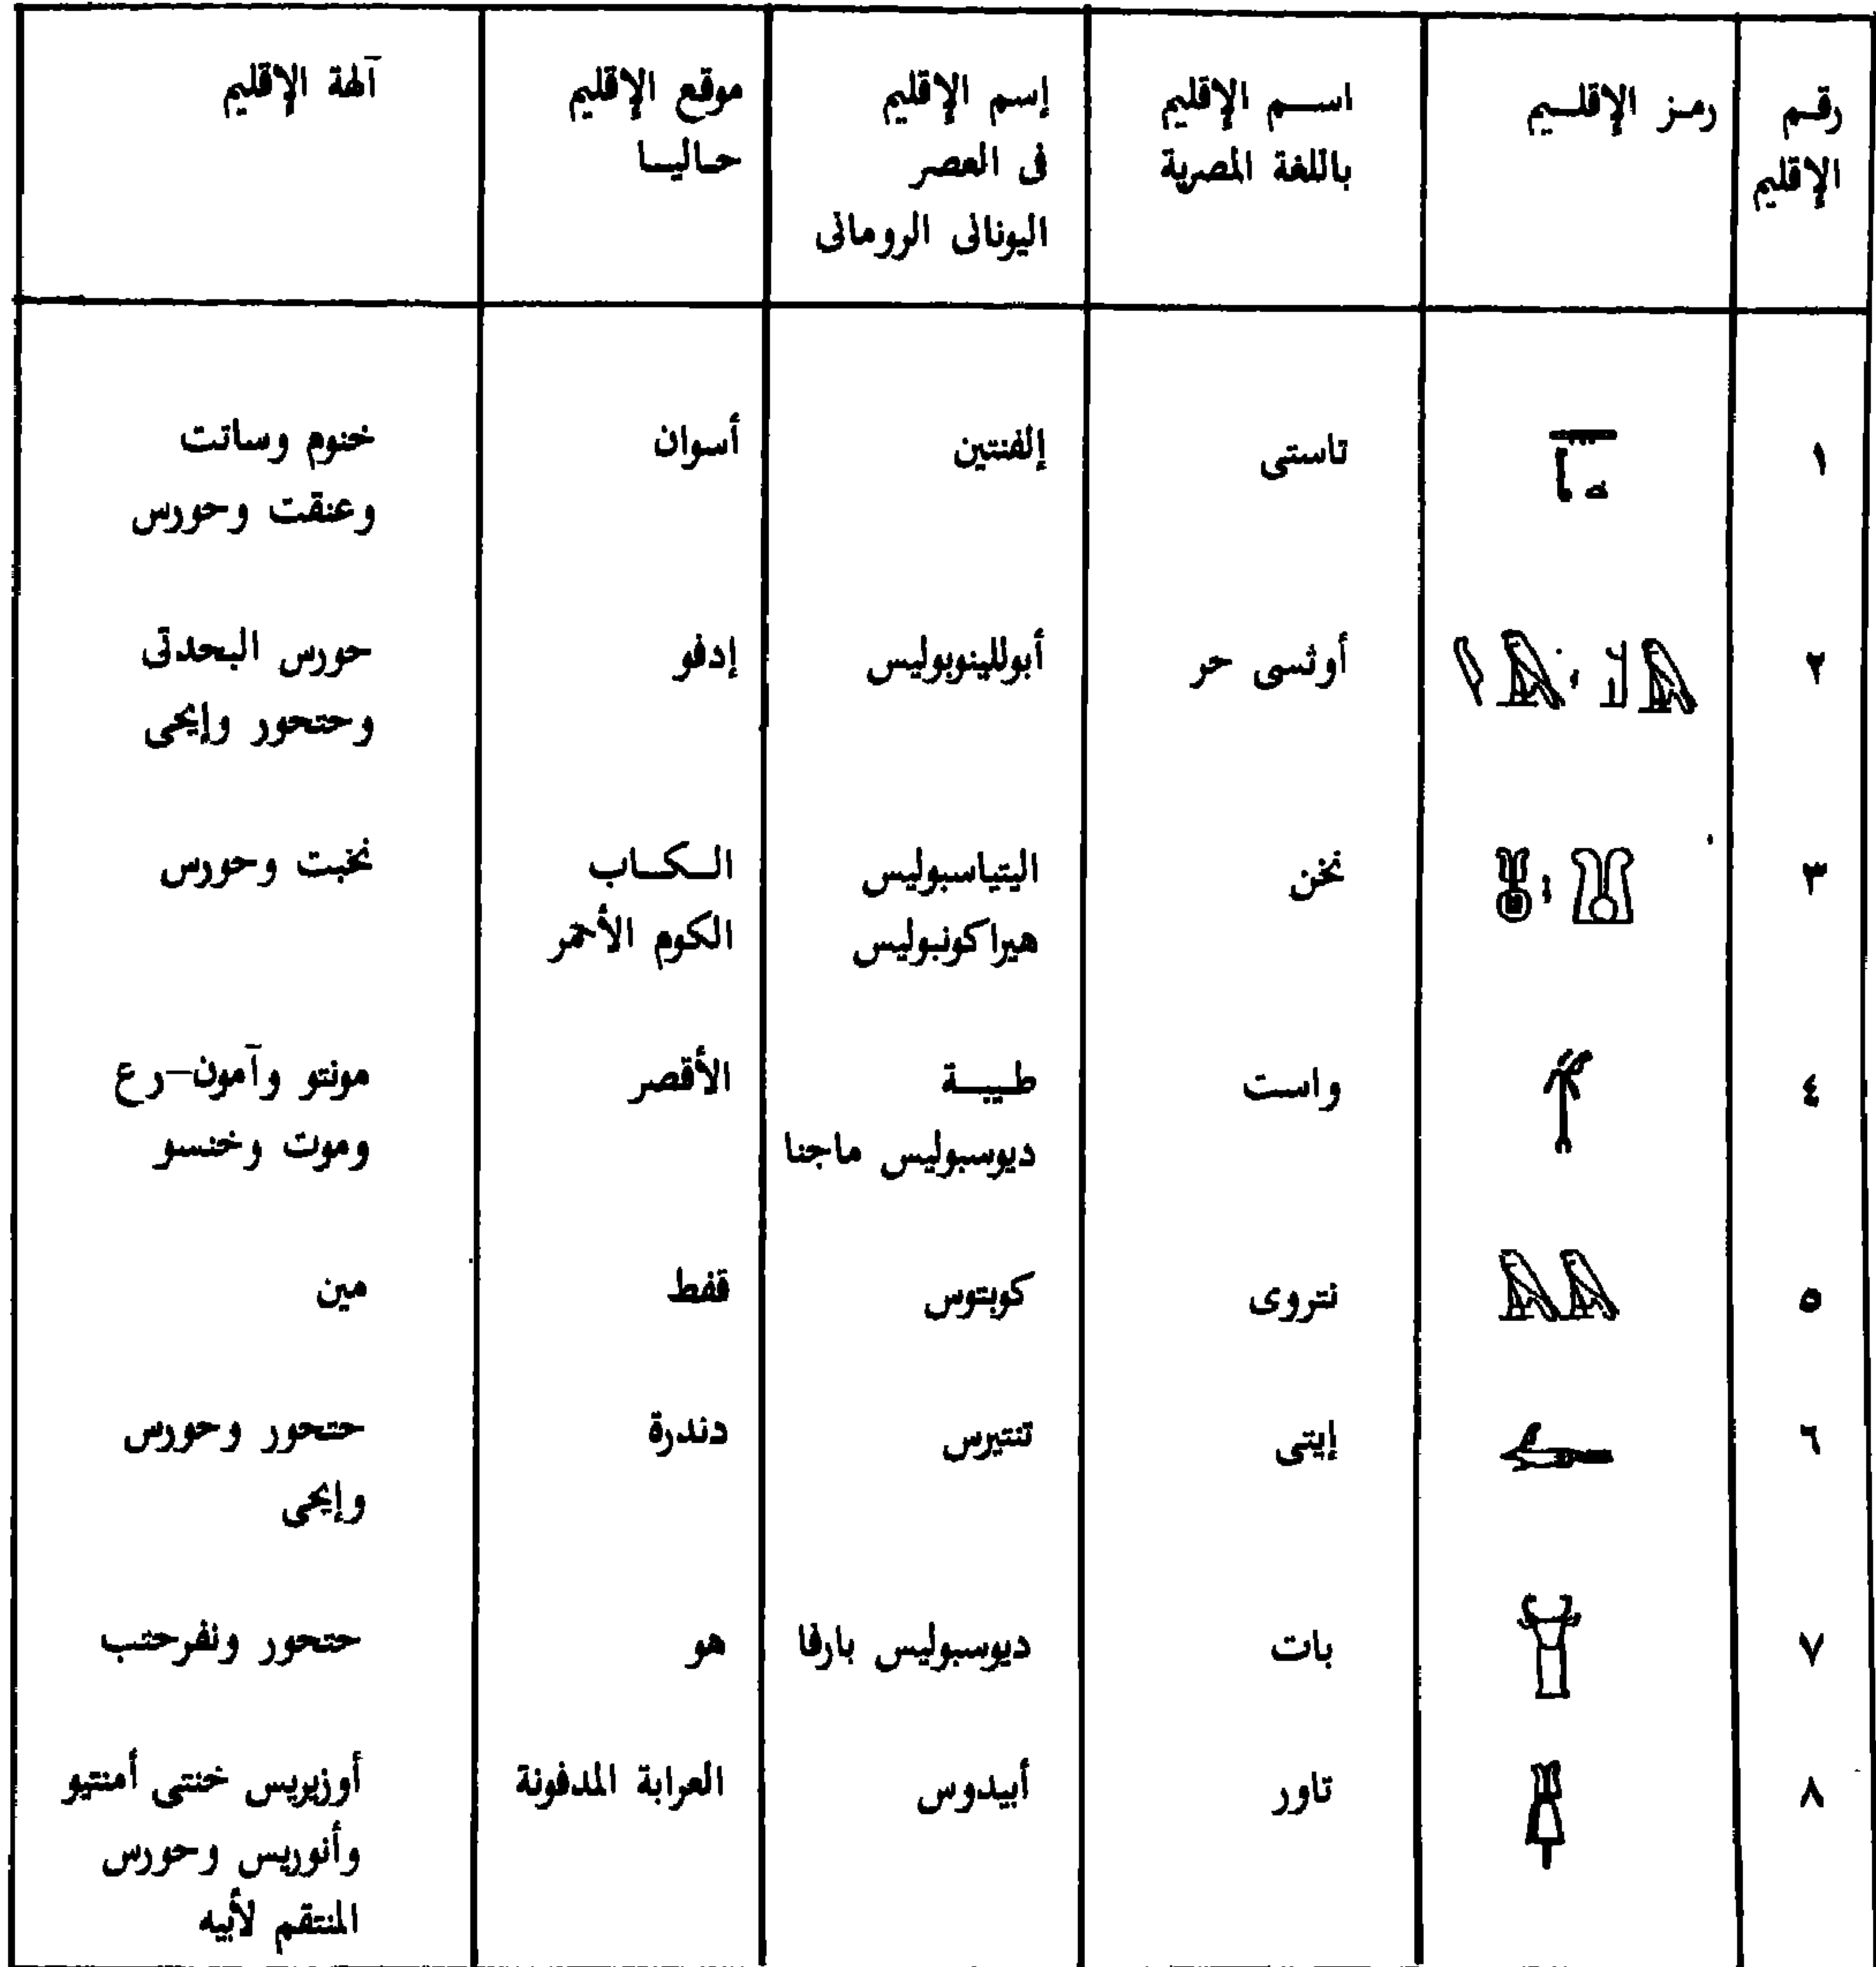 رقم الإقليم | رمز الإقليم | اسم الإقليم باللغة المصرية | إسم الإقليم فى العصر اليونانى الرومانى | موقع الإقليم حاليا | آلهة الإقليم
١ | تاستى | إلفنتين | أسوان | خنوم وساتت
وعنقت وحورس
٢ | أوثسى حر | أبوللينوبوليس | إدفو | حورس البحدتى
وحتحور وإيحى
٣ | نخن | اليتياسبوليس | الكاب | نخبت وحورس
هيراكونبوليس | الكوم الأحمر
٤ | واست | طيبة | الأقصر | مونتو وآمون–رع
ديوسبوليس ماجنا | وموت وخنسو
٥ | نتروى | كوبتوس | قفط | مين
٦ | إيتى | تنتيرس | دندرة | حتحور وحورس
وإيحى
٧ | بات | ديوسبوليس بارفا | هو | حتحور ونفرحتب
٨ | تاور | أبيدوس | العرابة المدفونة | أوزيريس خنتى أمنتيو
وأنوريس وحورس
المنتقم لأبيه